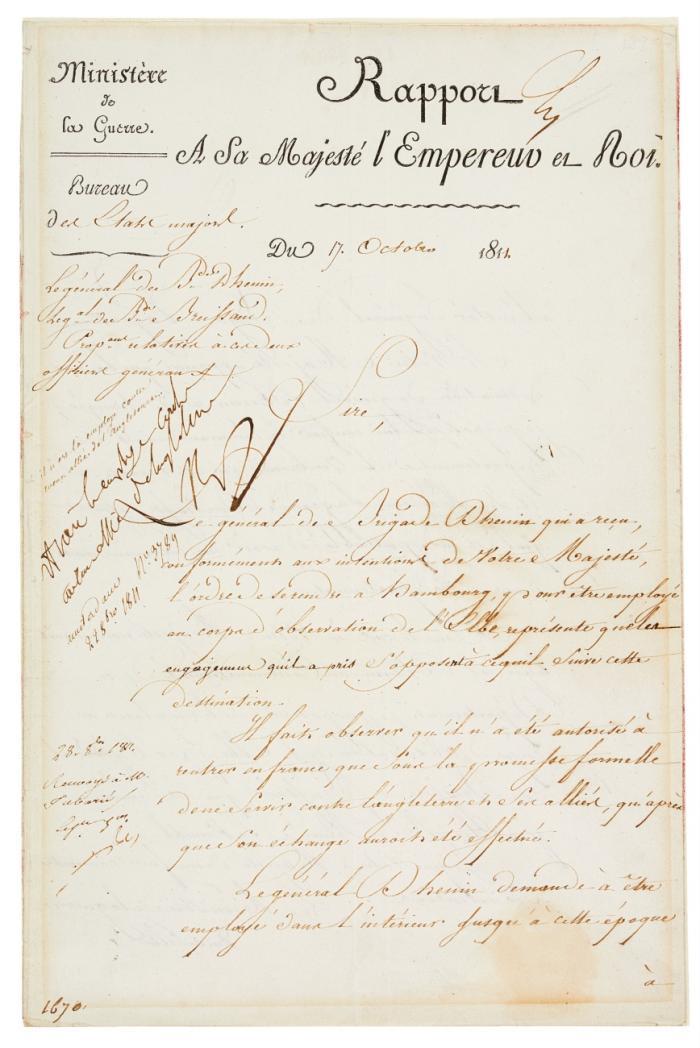 Ministère
de
la Guerre.
Bureau
des Etats majors.
Rapport
A Sa Majesté l'Empereur et Roi.
Du 17. Octobre 1811.
Le général de B.de Dhenin,
Le g.al de B.de Brussaud.
Prop.ons relatives à ces deux
officiers généraux.
Sire,
Le général de Brigade Dhenin qui a reçu,
conformément aux intentions de Votre Majesté,
l'ordre de se rendre à Hambourg, pour être employé
au corps d'observation de l'Elbe, représente que les
engagemens qu'il a pris s'opposent à ce qu'il suive cette
destination.
Il fait observer qu'il n'a été autorisé à
rentrer en france que sous la promesse formelle
de ne servir contre l'angleterre et ses alliés, qu'après
que son échange auroit été effectué.
Le général Dhenin demande à être
employé dans l'intérieur jusqu'à cette époque
à
il n'est là employé contre
aucun allié de l'angleterre
N.º 3789
28 8bre 1811
28. 8bre 1811.
Renvoyé à M.
1670.